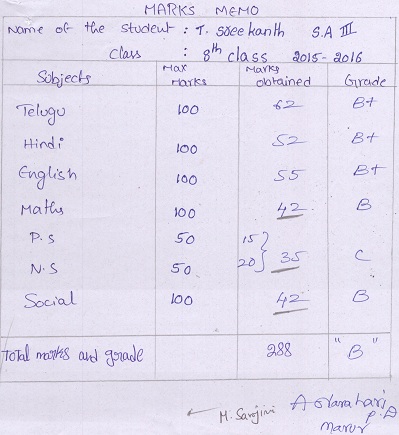 MARKS MEMO
Name of the student : T. Sreekanth S.A III
Class : 8th class 2015-2016
Subjects Max Marks Marks obtained Grade
Telugu 100 62 B+
Hindi 100 52 B+
English 100 55 B+
Maths 100 42 B
P.S 50 15
N.S 50 20 } 35 C
Social 100 42 B
Total marks and grade 288 "B"
M. Sarojini